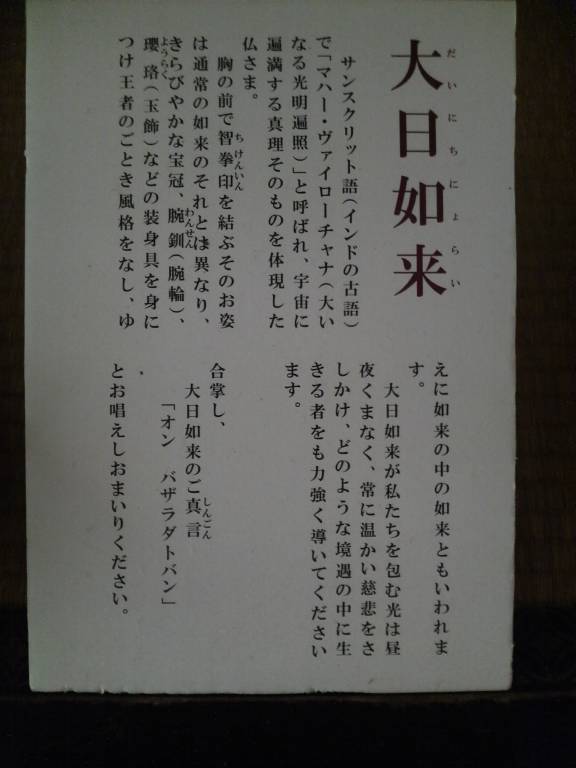 大日如来
だいにちにょらい
サンスクリット語(インドの古語)
で「マハー・ヴァイローチャナ(大い
なる光明遍照)」と呼ばれ、宇宙に
遍満する真理そのものを体現した
仏さま。
胸の前で智拳印を結ぶそのお姿
ちけんいん
は通常の如来のそれとは異なり、
きらびやかな宝冠、腕釧(腕輪)、
わんせん
瓔珞(玉飾)などの装身具を身に
ようらく
つけ王者のごとき風格をなし、ゆ
えに如来の中の如来ともいわれま
す。
大日如来が私たちを包む光は昼
夜くまなく、常に温かい慈悲をさ
しかけ、どのような境遇の中に生
きる者をも力強く導いてください
ます。
合掌し、
大日如来のご真言
しんごん
「オン バザラダトバン」
とお唱えしおまいりください。